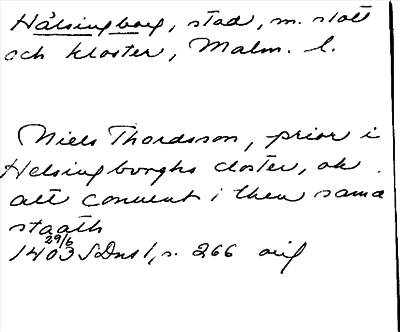 Hälsingborg, stad, m. slott
och kloster, Malm. l.
Niels Thordsson, prior i
Helsingborghs closter, ok
alt conuent i then sama
staath
29/6
1403 SDns 1, s. 266 orig